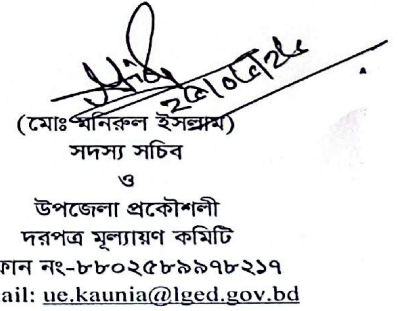 (মোঃ মনিরুল ইসলাম)
সদস্য সচিব
ও
উপজেলা প্রকৌশলী
দরপত্র মূল্যায়ণ কমিটি
ফোন নং-৮৮০২৫৮৯৯৭৮২১৭
ail: ue.kaunia@lged.gov.bd